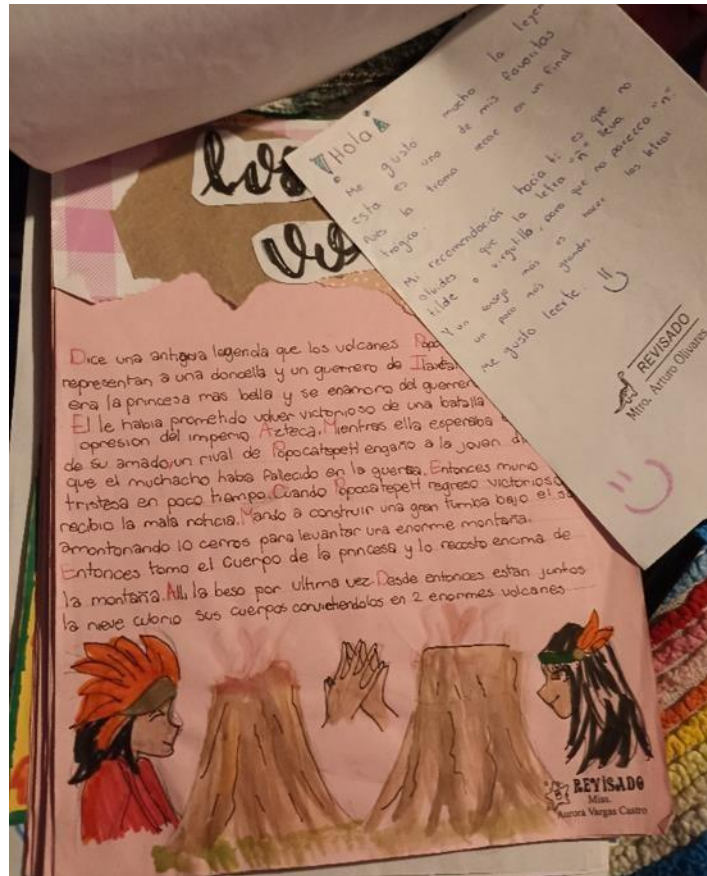 Los
Vo
¡Hola!
Me gusto mucho la leye
esta es una de mis favoritas
Pues la trama recae en un final
trágico.
Mi recomendación hacia ti es que no
olvides que la letra "ñ" lleva
tilde o virgulilla, para que no parezca "n".
Y un consejo más es hacer las letras
un poco más grandes.
Me gusto leerte.
REVISADO
Mtro. Arturo Olivares
Dice una antigua legenda que los volcanes Popo
representan a una doncella y un guerrero de
era la princesa mas bella y se enamoro del guerrer
El le habia prometido volver victorioso de una batalla
opresion del imperio Azteca. Mientras ella esperaba
de su amado, un rival de Popocatepetl engaño a la joven di
que el muchacho haba fallecido en la guerra. Entonces murio
tristesa en poco tiempo. Cuando Popocatepetl regreso victorioso
recibio la mala noticia. Mando a construir una gran tumba bajo el s
amontonando 10 cerros para levantar una enorme montaña.
Entonces tomo el Cuerpo de la princesa y lo recosto encima de
la montaña. Alli la beso por ultima vez. Desde entonces estan juntos
la nieve cubrio sus cuerpos convietiendolos en 2 enormes volcanes
REVISADO
Miss.
Aurora Vargas Castro